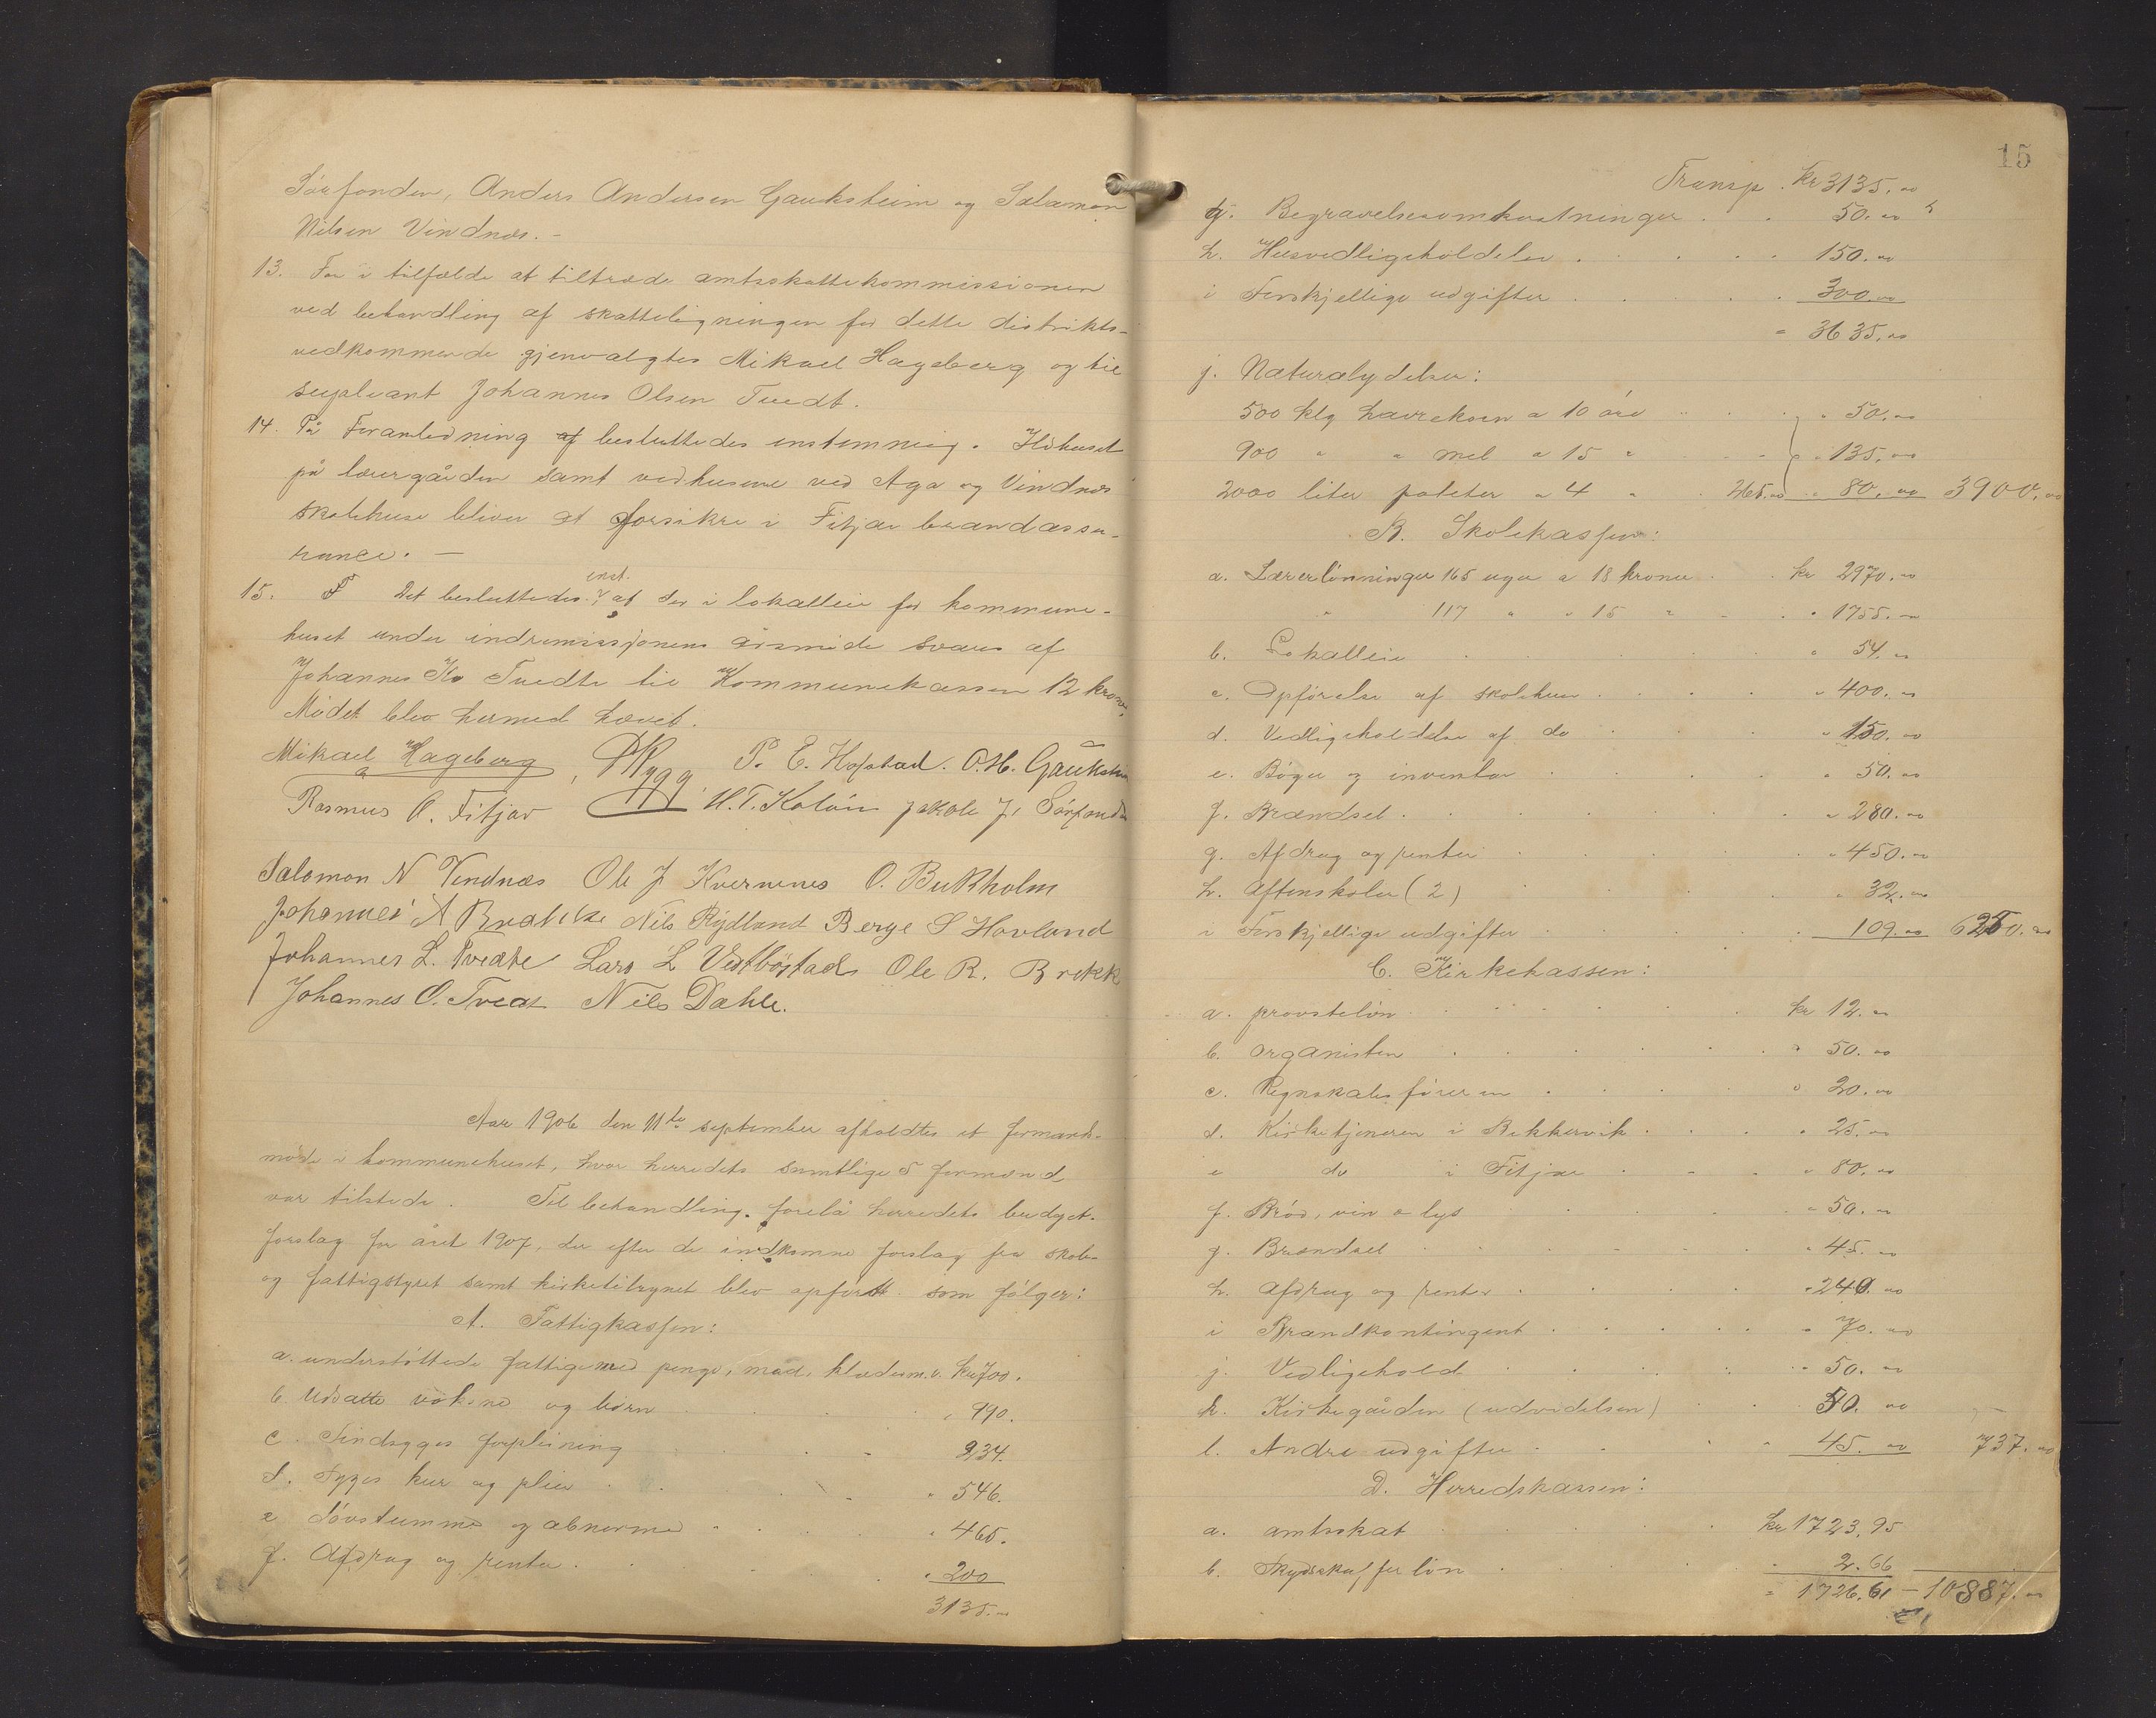 Sørfonden, Anders Andersen Gauksheim og Salamon
Nilsen Vindnes. -
13. For i tilfælde at tiltræde amtsskattekommissionen
ved behandling af skatteligningen for dette distrikts-
vedkommende gjenvalgtes Mikael Hageberg og til
supleant Johannes Olsen Tvedt.
14. På Foranledning af besluttedes enstemmig. Ildhuset
på lærergården samt vedhusene ved Aga og Vindnes
skolehuse bliver at forsikre i Fitjar brandassu-
rance. -
15. Det besluttedes enst. at der i lokalleie for kommune-
huset under indremissjonens årsmøde svares af
Johannes Tvedte til Kommunekassen 12 kroner.
Mødet blev hermed hævet.
Mikael Hageberg, Rygg, P. E. Hofstad. O. H. Gaukshei
Rasmus O. Fitjar H. T. Koløen Jakob J. Sørfond
Salomon N Vindnæs Ole J Kvernenes O. Bukholm
Johannes A Bratteke Nils Rydland Berge S Hovland
Johannes L. Tvedte Lars L Vestbøstad Ole R. Brekk
Johannes O. Tvedt Nils Dahle.
Aar 1906 den 11te september afholdtes et formands-
møde i kommunehuset, hvor herredets samtlige 5 formænd
var tilstede. Til behandling forelå herredets budget-
forslag for året 1907, der efter de indkomne forslag fra skole-
og fattigstyret samt kirketilsynet blev opført som følger:
A. Fattigkassen:
a. understøttede fattige med penge, mad, klæder m. v. kr 700.
b. Udsatte voksne og børn " 990.
c. Sindsyges forpleining 234.
d. Syges kur og pleie " 546.
e Døvstumme og abnorme " 465.
f. Afdrag og renter " 200
3135.00
15
Transp. kr 3135.00
g. Begravelsesomkostninger 50.00
h. Husvedligeholdelse 150.00
i Forskjellige udgifter 300.00
" 3635.00
j. Naturalydelser:
500 klg havrekorn a 10 øre " 50.00
900 " " mel a 15 " " 135.00
2000 liter poteter a 4 " 265.00 " 80.00 3900.00
B. Skolekassen:
a. Lærerlønninger 165 uger a 18 kroner kr 2970.00
" 117 " " 15 " " 1755.00
b. Lokalleie " 54.00
c. Opførelse af skolehuse " 400.00
d. Vedligeholdelse af do " 150.00
e. Bøger og inventar " 50.00
f. Brændsel " 280.00
g. Afdrag og renter " 450.00
h. Aftenskoler (2) " 32.00
i Forskjellige udgifter 109.00 6250.00
C. Kirkekassen:
a. provsteløn kr 12.00
b. organisten " 50.00
c. Regnskabsføreren " 20.00
d. Kirketjeneren i Bekkervik " 25.00
e do i Fitjar " 80.00
f. Brød, vin o lys " 50.00
g. Brændsel " 45.00
h. Afdrag og renter " 240.00
i Brandkontingent " 70.00
j. Vedligehold " 50.00
k. Kirkegården (udvidelsen) 50.00
l. Andre udgifter " 45.00 737.00
D. Herredskassen:
a. amtsskat kr 1723.95
b. Skydsskafferløn " 2.66
" 1726.61 - 10887.00